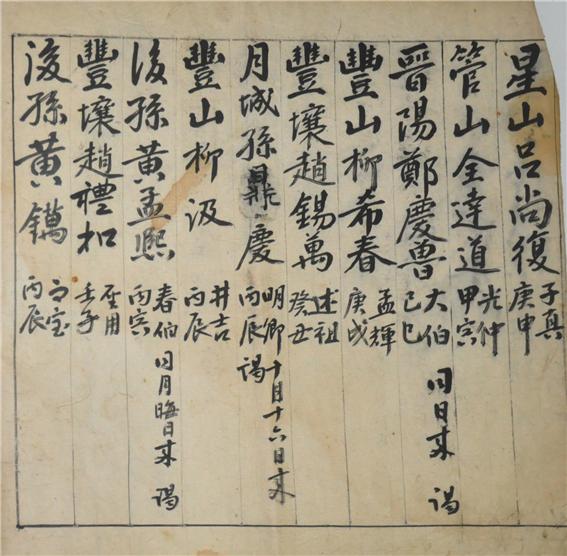 星山呂尚復 子真 庚申
管山全達道 光仲 甲寅
晉陽鄭慶 大伯 己巳 同日來 謁
豐山柳希春 孟輝 庚戌
豐壤趙錫萬 述祖 癸丑
月城孫鼎慶 明卿 丙辰 十月十六日來 謁
豐山柳汲 井吉 丙辰
後孫黃孟熙 春伯 丙寅 同月晦日來 謁
豐壤趙禮和 用 壬子
後孫黃 宝 丙辰